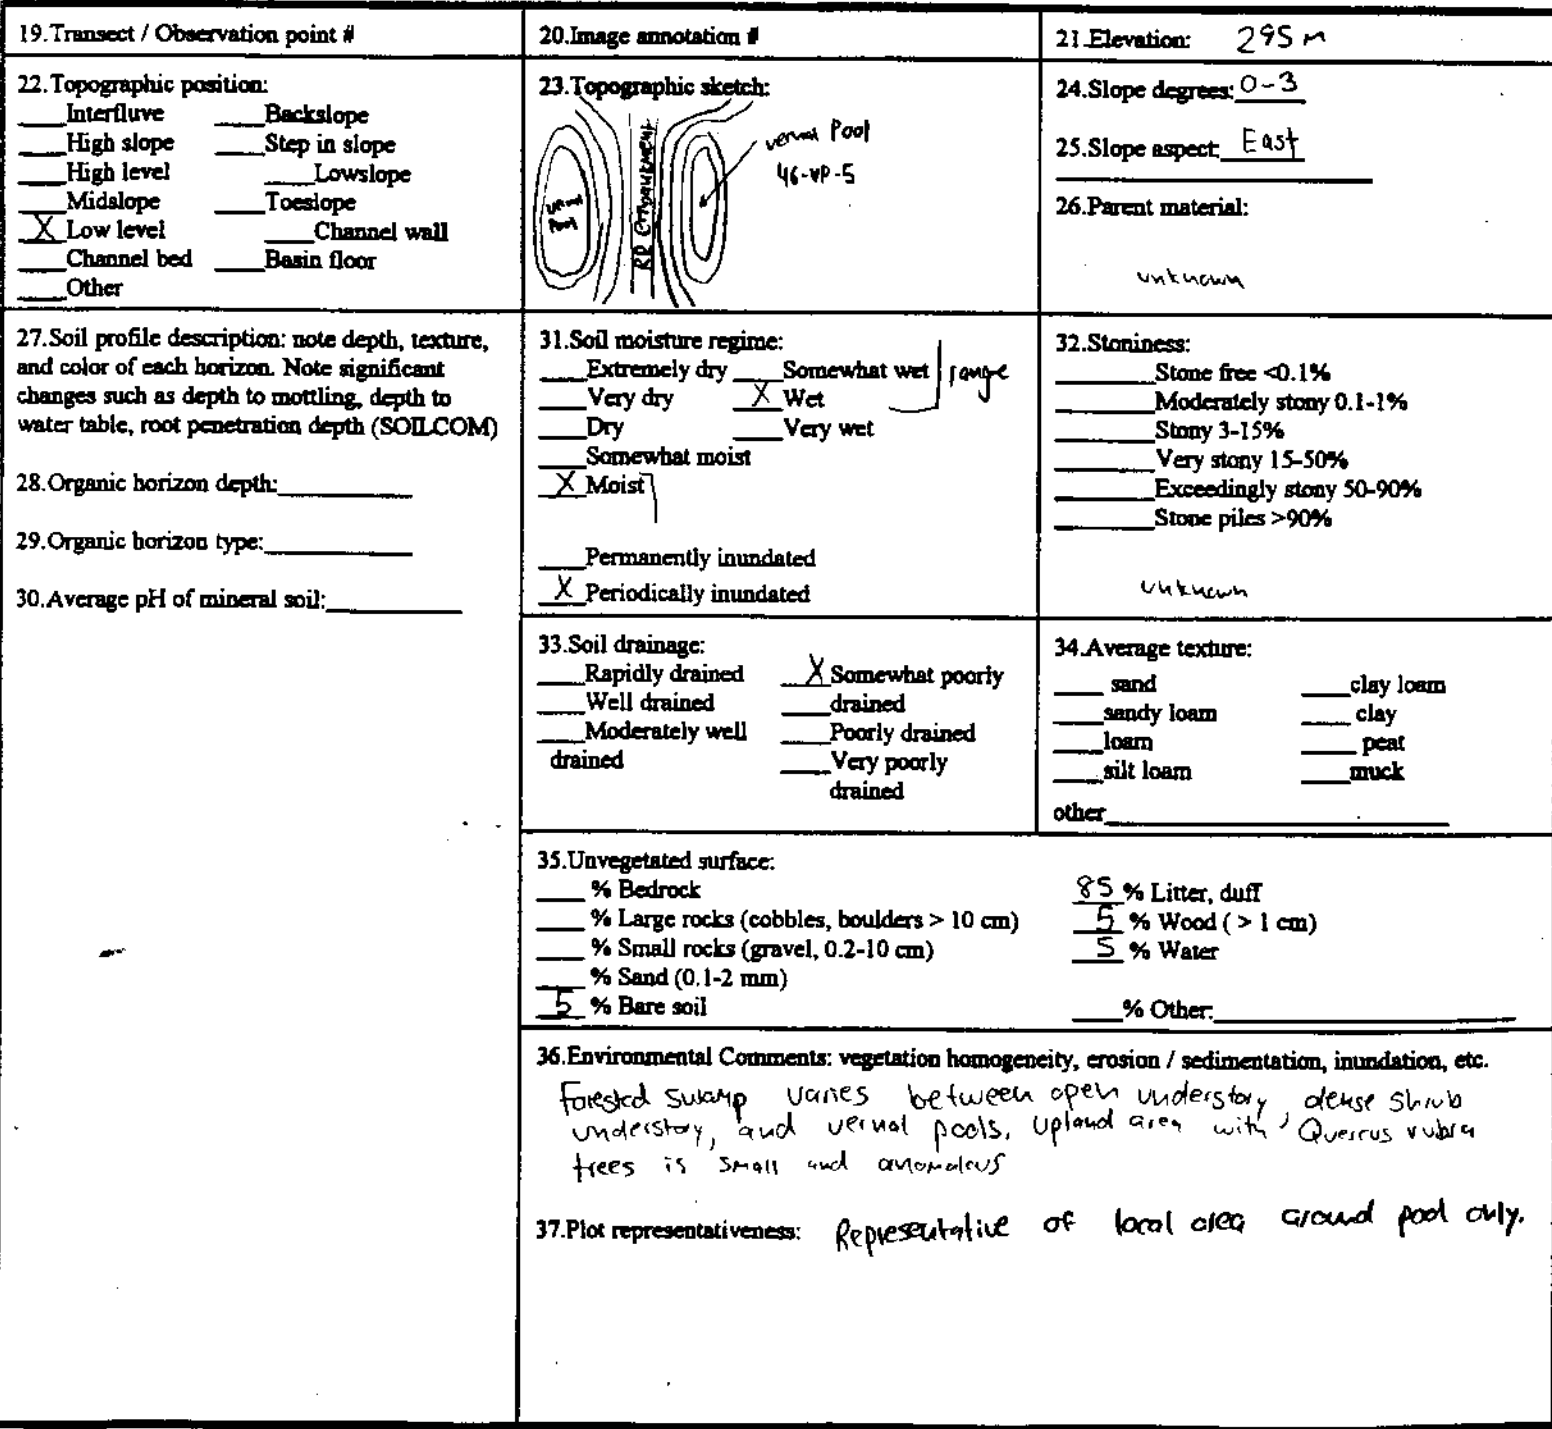 19.Transect / Observation point #
20.Image annotation #
21.Elevation: 295 m
22.Topographic position:
___Interfluve ___Backslope
___High slope ___Step in slope
___High level ___Lowslope
___Midslope ___Toeslope
_X_Low level ___Channel wall
___Channel bed ___Basin floor
___Other
23.Topographic sketch:
vernal Pool
46-VP-5
vernal
Pool
RR Embankment
24.Slope degrees: 0-3
25.Slope aspect: East
26.Parent material:
unknown
27.Soil profile description: note depth, texture,
and color of each horizon. Note significant
changes such as depth to mottling, depth to
water table, root penetration depth (SOILCOM)
28.Organic horizon depth:_________
29.Organic horizon type:_________
30.Average pH of mineral soil:_________
31.Soil moisture regime:
___Extremely dry ___Somewhat wet range
___Very dry _X_Wet
___Dry ___Very wet
___Somewhat moist
_X_Moist
___Permanently inundated
_X_Periodically inundated
32.Stoniness:
______Stone free <0.1%
______Moderately stony 0.1-1%
______Stony 3-15%
______Very stony 15-50%
______Exceedingly stony 50-90%
______Stone piles >90%
unknown
33.Soil drainage:
___Rapidly drained _X_Somewhat poorly
___Well drained ___drained
___Moderately well ___Poorly drained
drained ___Very poorly
drained
34.Average texture:
___ sand ___clay loam
___sandy loam ___ clay
___loam ___ peat
___silt loam ___muck
other_______________
35.Unvegetated surface:
___ % Bedrock 85 % Litter, duff
___ % Large rocks (cobbles, boulders > 10 cm) 5 % Wood ( > 1 cm)
___ % Small rocks (gravel, 0.2-10 cm) 5 % Water
___ % Sand (0.1-2 mm)
5 % Bare soil ___% Other:_______________
36.Environmental Comments: vegetation homogeneity, erosion / sedimentation, inundation, etc.
Forested swamp varies between open understory, dense shrub
understory, and vernal pools. Upland area with Quercus rubra
trees is small and anomalous
37.Plot representativeness: Representative of local area around pool only.